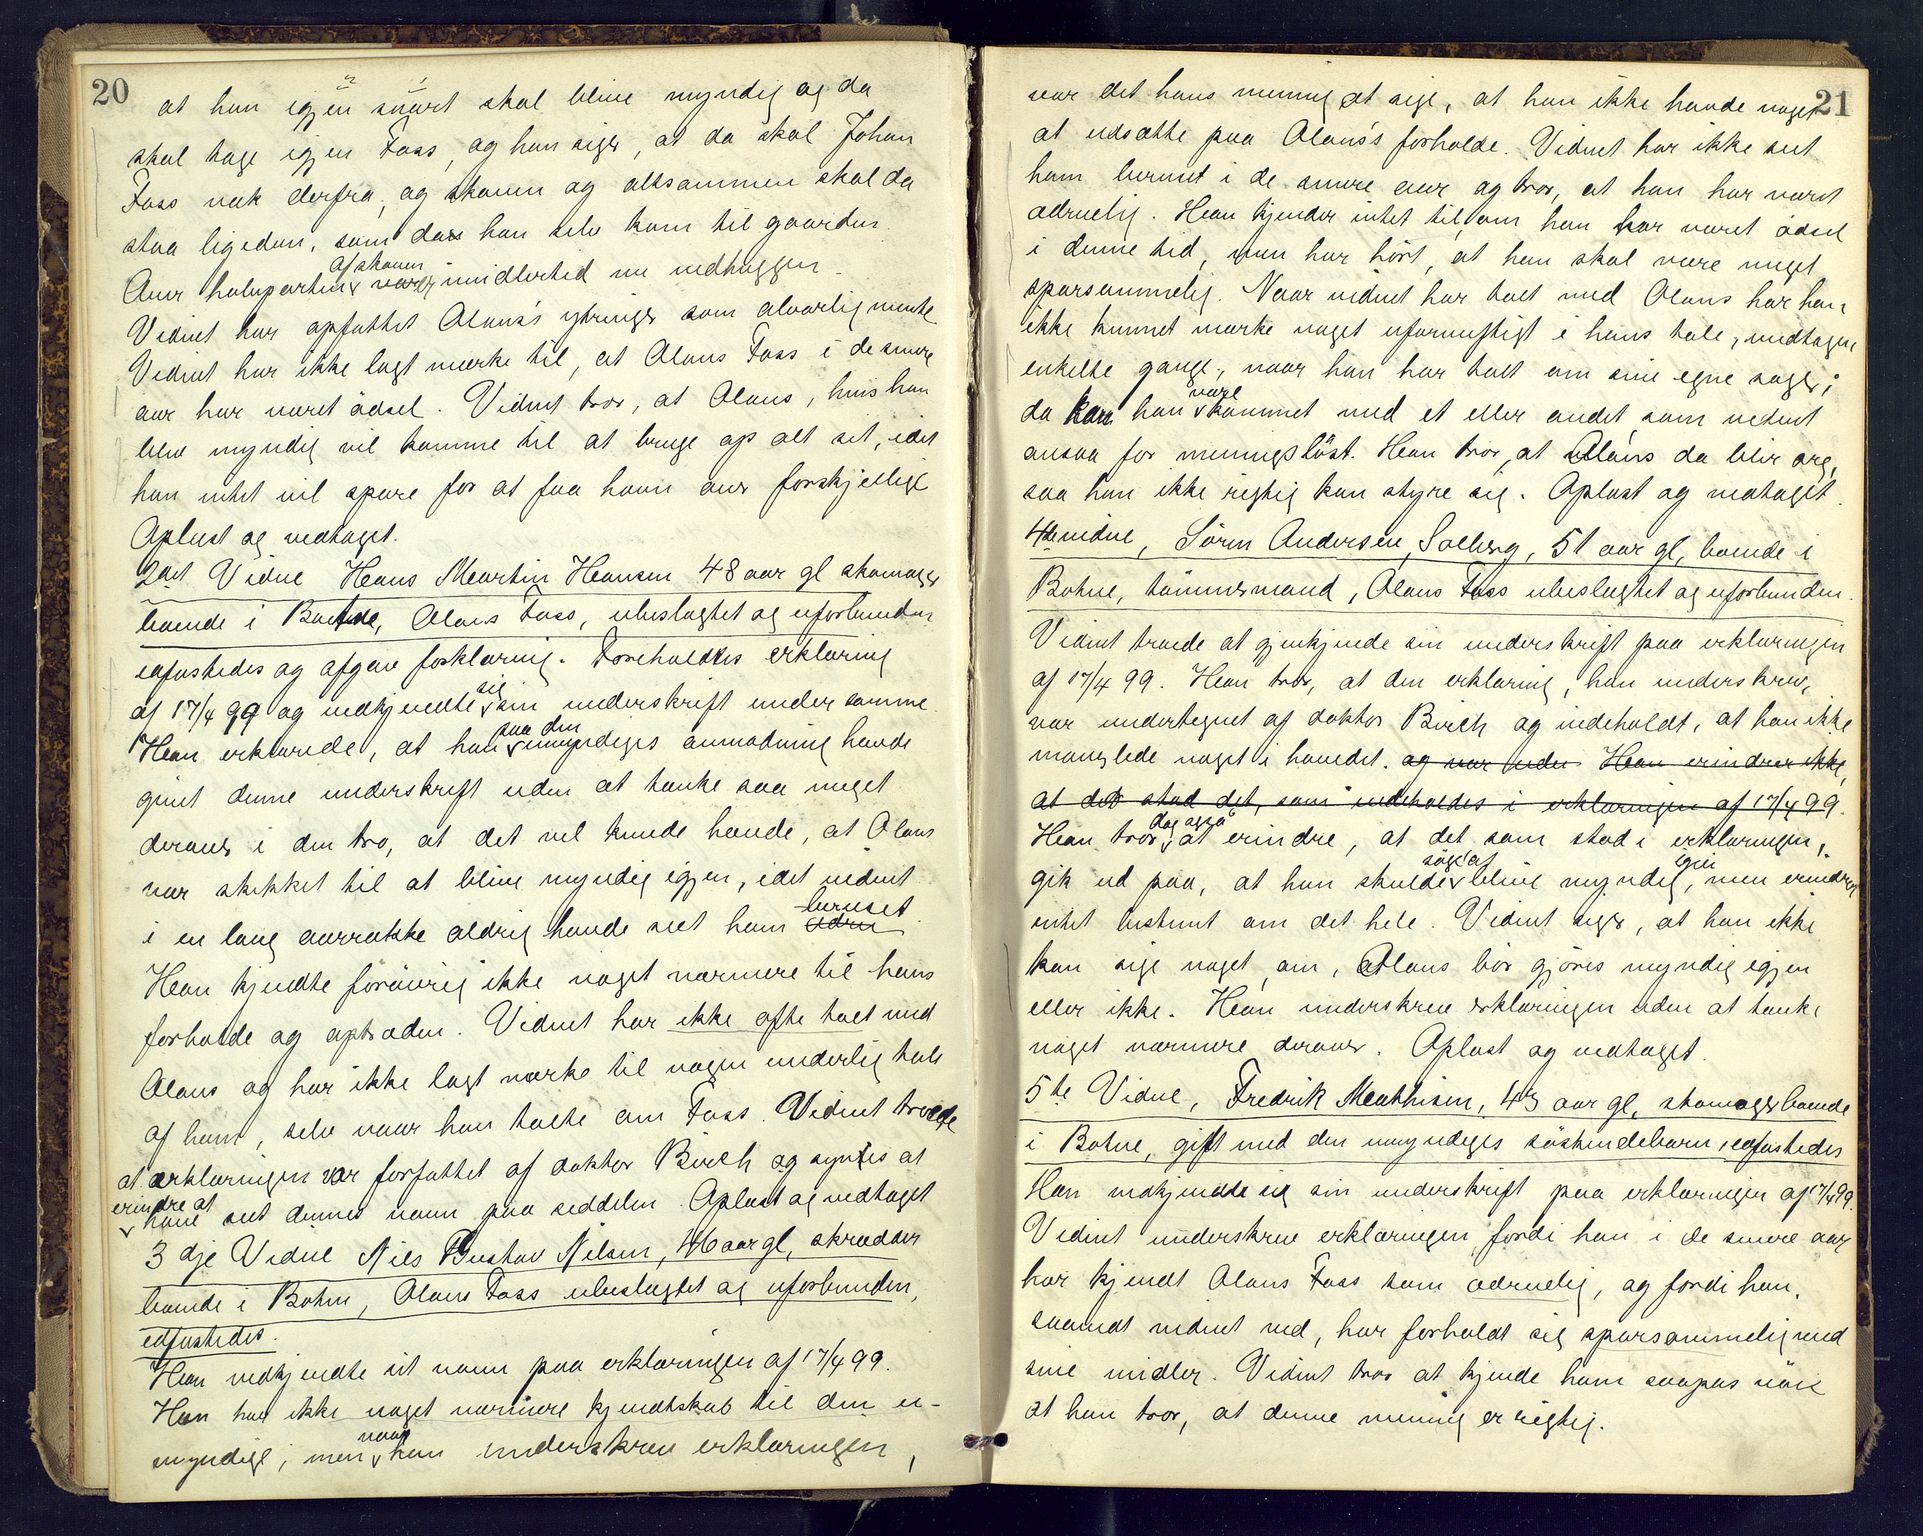 20
at han igjen snart skal blive myndig og da
skal tage igjen Foss, og han siger, at da skal Johan
Foss væk derfra, og skoven og altsammen skal da
staa ligedan, som da han selv kom til gaarden
af skoven
Over halvparten er imidlertid nu nedhuggen.
Vidnet har opfattet Olaus's ytringer som alvorlig mente
Vidnet har ikke lagt mærke til, at Olaus Foss i de senere
aar har været ødsel. Vidnet tror, at Olaus, hvis han
blev myndig vil komme til at bruge op alt sit, idet
han intet vil spare for at faa ham over forskjellige
Oplæst og vedtaget.
2det Vidne Hans Martin Hansen 48 aar gl skomager
boende i Botne, Olaus Foss, ubeslægtet og uforbunden
edfæstedes og afgav forklaring. Foreholdtes erklæring
sig
af 17/4 99 og vedkjendte sin underskrift under samme
paa den
Han erklærede, at han umyndiges anmodning havde
givet denne underskrift uden at tænke saa meget
derover i den tro, at det vel kunde hænde, at Olaus
var skikket til at blive myndig igjen, idet vidnet
beruset
i en lang aarrække aldrig havde seet ham
Han kjendte forøvrig ikke noget nærmere til hans
forholde og optræden. Vidnet har ikke ofte talt med
Olaus og har ikke lagt mærke til nogen underlig tale
af ham, selv naar han talte om Foss. Vidnet troede
at erklæringen var forfattet af doktor Birch og syntes at
erindre at
have seet dennes navn paa seddelen. Oplæst og vedtaget
3 dje Vidne Nils Gustav Nilsen, 46 aar gl, skrædder
boende i Botne, Olaus Foss ubeslægtet og uforbunden,
edfæstedes.
Han vedkjendte sit navn paa erklæringen af 17/4 99.
Han har ikke noget nærmere kjendskab til den u-
naar
myndige, men han underskrev erklæringen,
21
var det hans mening at sige, at han ikke havde noget
at udsætte paa Olaus's forholde. Vidnet har ikke seet
ham beruset i de senere aar og tror, at han har været
ædruelig. Han kjender intet til, om han har været ødsel
i denne tid, men har hørt, at han skal være meget
sparsommelig. Naar vidnet har talt med Olaus har han
ikke kunnet mærke noget ufornuftigt i hans tale, undtagen
enkelte gange, naar han har talt om sine egne sager;
være
da kan han kommet med et eller andet, som vidnet
ansaa for meningsløst. Han tror, at Olaus da blir arg,
saa han ikke rigtig kan styre sig. Oplæst og vedtaget.
4de vidne, Søren Andersen Solberg, 51 aar gl, boende i
Botne, tømmermand, Olaus Foss ubeslægtet og uforbunden.
Vidnet troede at gjenkjende sin underskrift paa erklæringen
af 17/4 99. Han tror, at den erklæring, han underskrev,
var undertegnet af doktor Birch og indeholdt, at han ikke
manglede noget i hovedet. og var uden Han erindrer ikke,
at det stod det, som indeholdes i erklæringen af 17/4 99.
dog ogsaa
Han tror at erindre, at det som stod i erklæringen,
søge at igjen
gik ud paa, at han skulde blive myndig, men erindrer
intet bestemt om det hele. Vidnet siger, at han ikke
kan sige noget om, Olaus bør gjøres myndig igjen
eller ikke. Han underskrev erklæringen uden at tænke
noget nærmere derover. Oplæst og vedtaget.
5te Vidne, Fredrik Mathisen, 43 aar gl, skomager boende
i Botne, gift med den umyndiges søskendebarn, edfæstedes
Han vedkjendte sig sin underskrift paa erklæringen af 17/4 99.
Vidnet underskrev erklæringen, fordi han i de senere aar
har kjendt Olaus Foss som ædruelig, og fordi han,
saavidt vidnet ved, har forholdt sig sparsommelig med
sine midler. Vidnet tror at kjende ham saapas nøie
at han tror, at denne mening er rigtig.